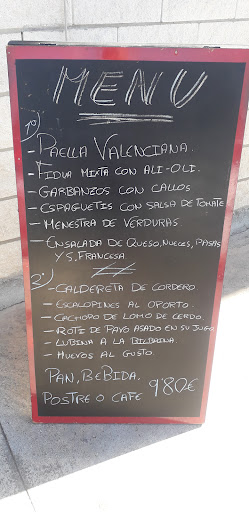 MENU
1º)
- PAELLA VALENCIANA.
- FIDUA MIXTA CON ALI-OLI.
- GARBANZOS CON CALLOS
- ESPAGUETIS CON SALSA DE TOMATE
- MENESTRA DE VERDURAS
- ENSALADA DE QUESO, NUECES, PASAS
Y S, FRANCESA
2º)
- CALDERETA DE CORDERO
- ESCALOPINES AL OPORTO.
- CACHOPO DE LOMO DE CERDO.
- ROTI DE PAVO ASADO EN SU JUGO.
- LUBINA A LA BILBAINA.
- HUEVOS AL GUSTO.
PAN, BEBIDA.
POSTRE O CAFE 9'80€